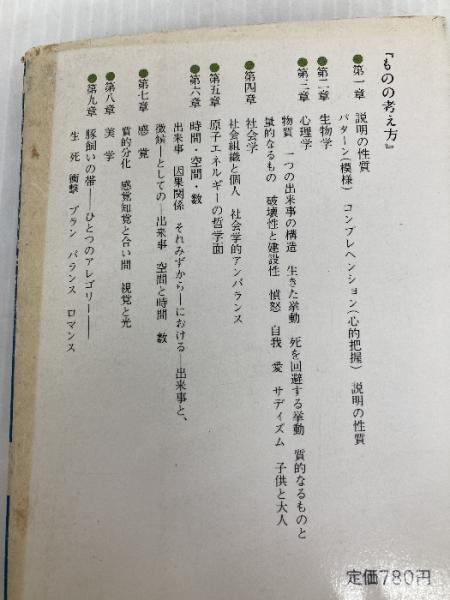 『ものの考え方』
●第一章　説明の性質
パターン(模様)　コンプレヘンション(心的把握)　説明の性質
●第二章　生物学
●第三章　心理学
物質　一つの出来事の構造　生きた挙動　死を回避する挙動　質的なるものと
量的なるもの　破壊性と建設性　憤怒　自我　愛　サディズム　子供と大人
●第四章　社会学
社会組織と個人　社会学的アンバランス
●第五章　原子エネルギーの哲学面
●第六章　時間・空間・数
出来事　因果関係　それみずから—における—出来事と、
徴候—としての—出来事　空間と時間　数
●第七章　感覚
質的分化　感覚知覚と合い間　視覚と光
●第八章　美学
●第九章　豚飼いの帯——ひとつのアレゴリー——
生　死　衝撃　プラン　バランス　ロマンス
定価780円